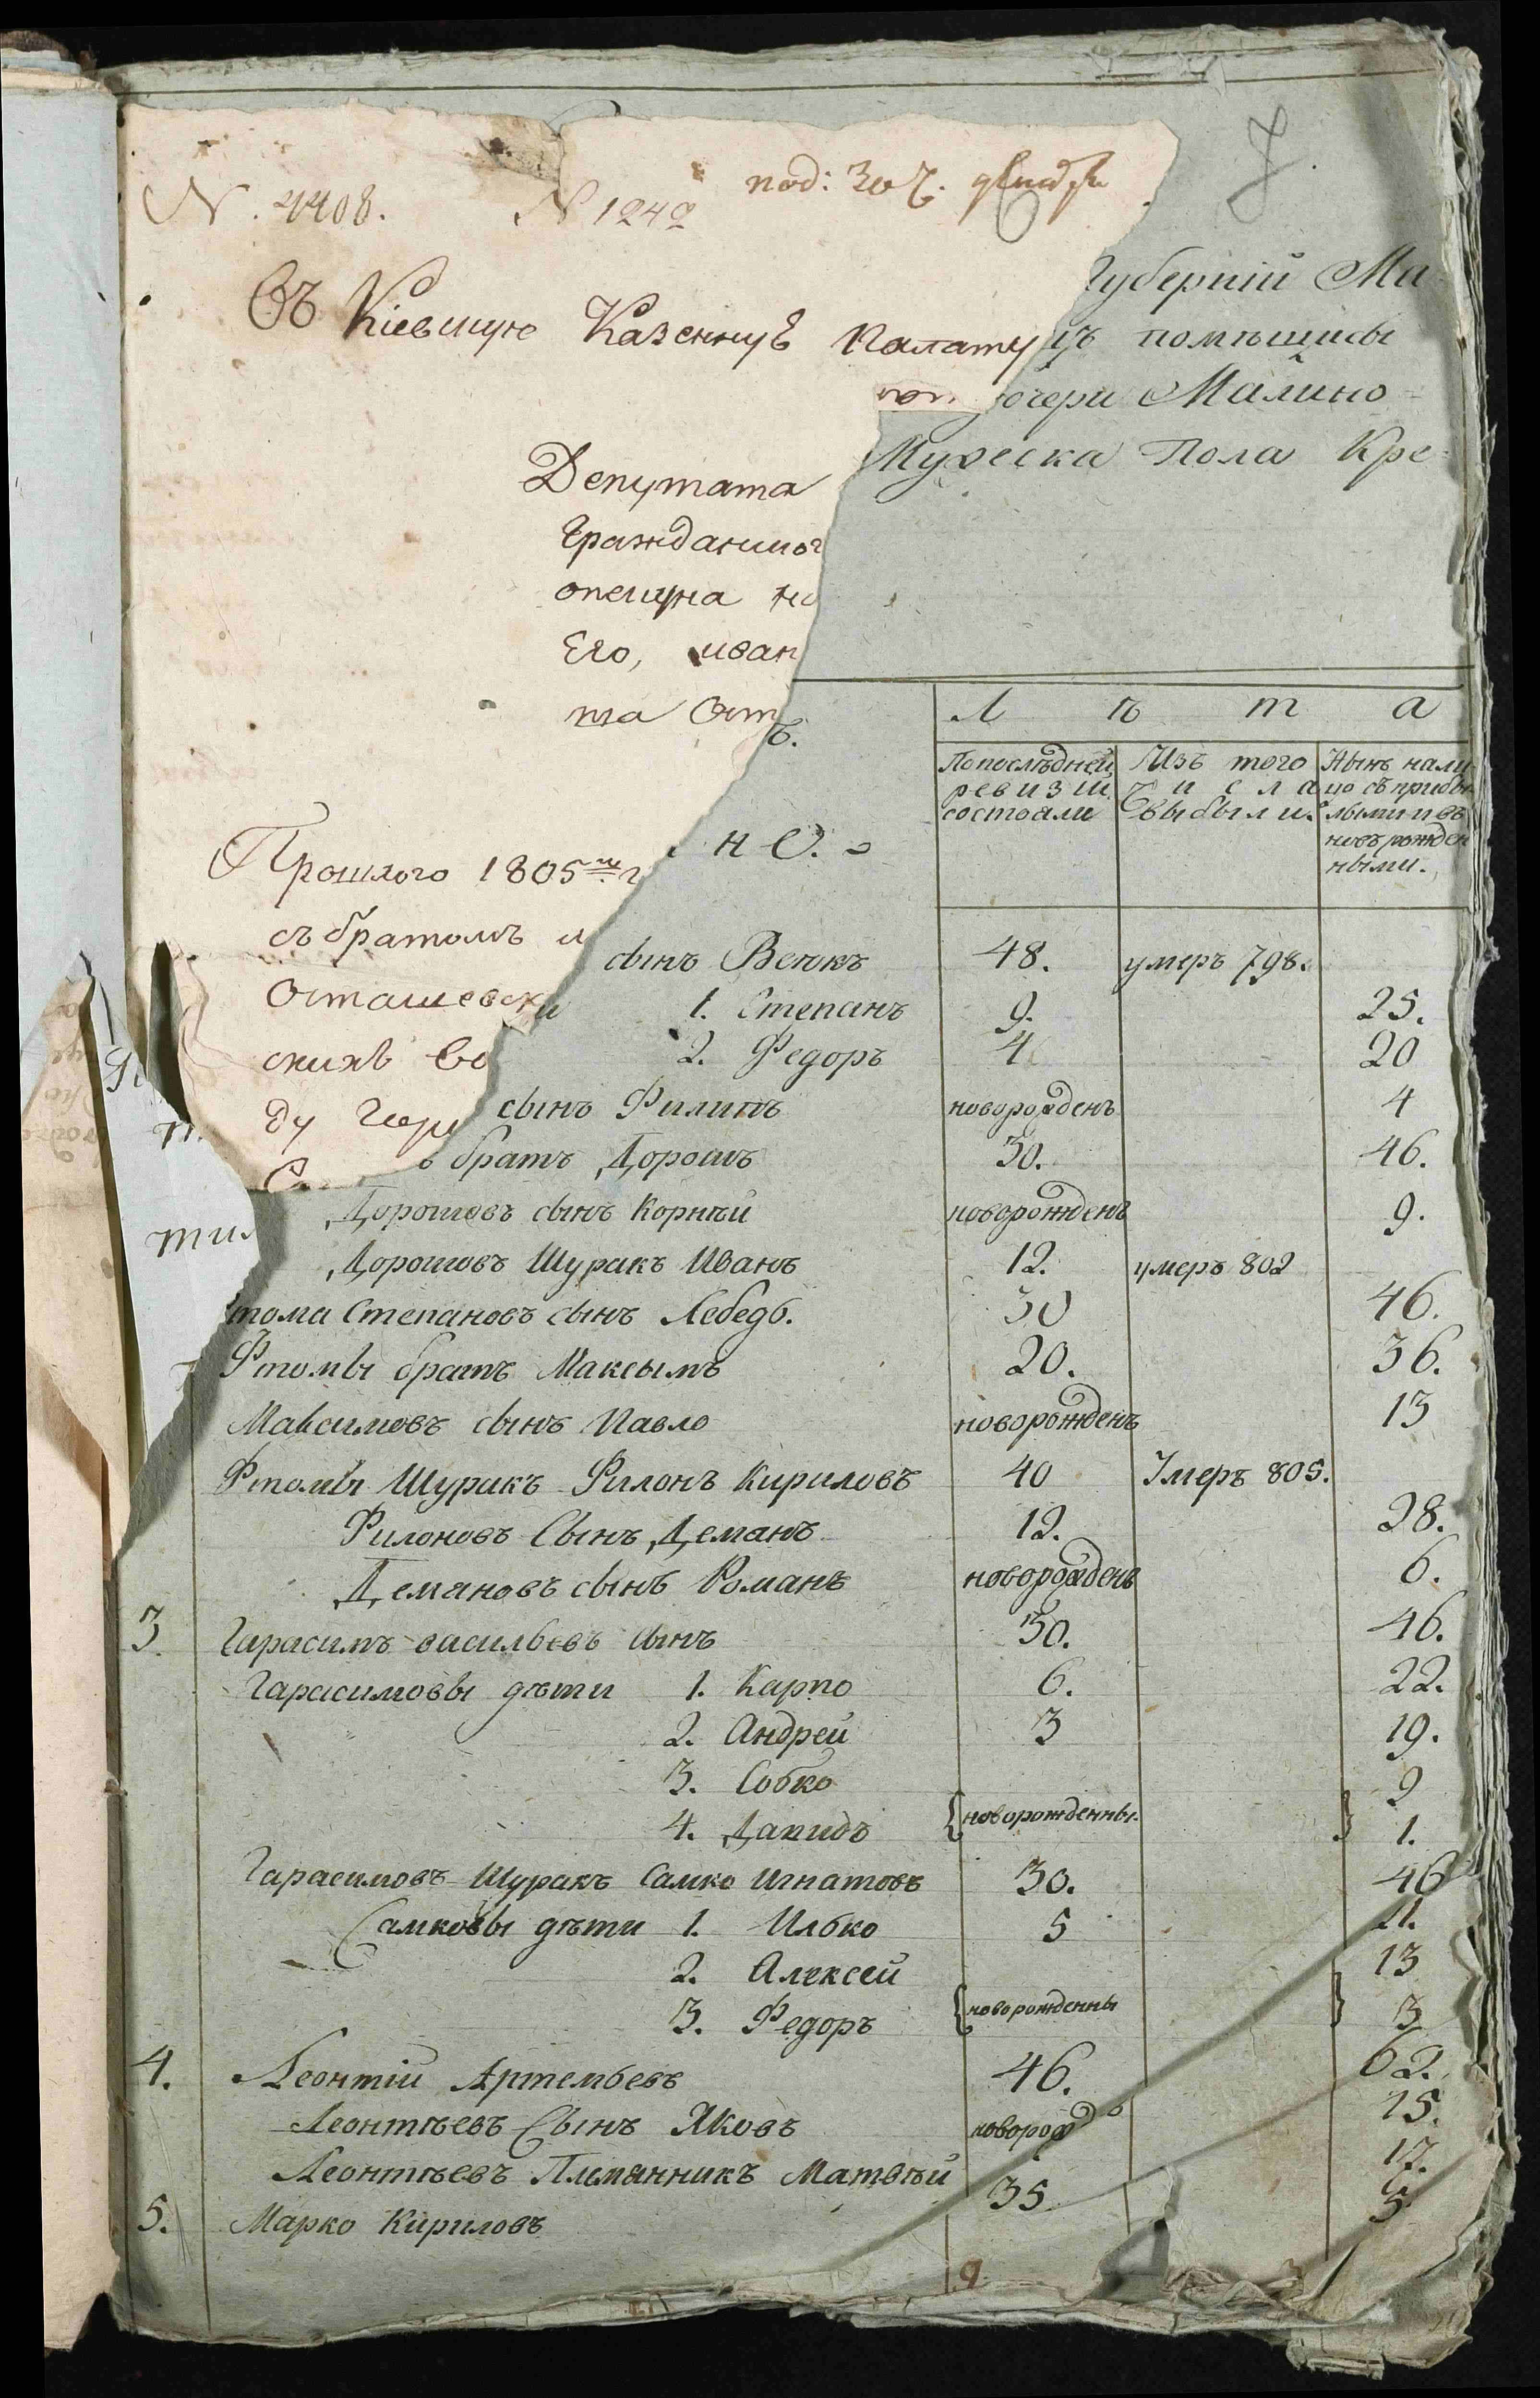 N. 4408. N 1242 под: 30 Ч. декабр
Въ Кіевскую Казенную Палату
Депутата
Гражданског
опекуна
Его, иван
та Ост
Прошлого 1805 г
съ братомъ и
Осташевски
скихъ
ду
7.
Губерніи Ма
помѣщицы
дочери Малино-
Мужеска Пола Кре-
ъ.
Л ѣ т а
По последней ревизіи состояли
Изъ того числа выбыли.
Нынѣ налицо съ прибылыми и вновь рожденными.
н о.
сынъ Венюкъ 48. умеръ 798.
1. Степанъ 9. 25.
2. Федоръ 4 20
сынъ Филипъ новорожденъ 4
братъ Дорошъ 30. 46.
Дорошовъ сынъ Корнѣй новорожденъ 9.
Дорошовъ Шуракъ Иванъ 12. умеръ 802
тома Степановъ сынъ Лебедь. 30 46.
Фтомы братъ Максымъ 20. 36.
Максимовъ сынъ Павло новорожденъ 13
Фтомы Шуракъ Филонъ Кириловъ 40 Умеръ 805.
Филоновъ Сынъ Деманъ 12. 28.
Демановъ сынъ Романъ новорожденъ 6.
3. Гарасимъ васильевъ сынъ 30. 46.
Гарасимовы дѣти 1. Карпо 6. 22.
2. Андрей 3 19.
3. Собко 9
4. Дакидъ новорожденны. 1.
Гарасимовъ Шуракъ Самко Игнатовъ 30. 46
Самковы дѣти 1. Илько 5 21.
2. Алексей 13
3. Федоръ новорожденны 3
4. Леонтій Артемьевъ 46. 62.
Леонтѣевъ Сынъ Яковъ новорожд 15.
Леонтѣевъ Племянникъ Матвѣй 17.
5. Марко Кириловъ 35 5